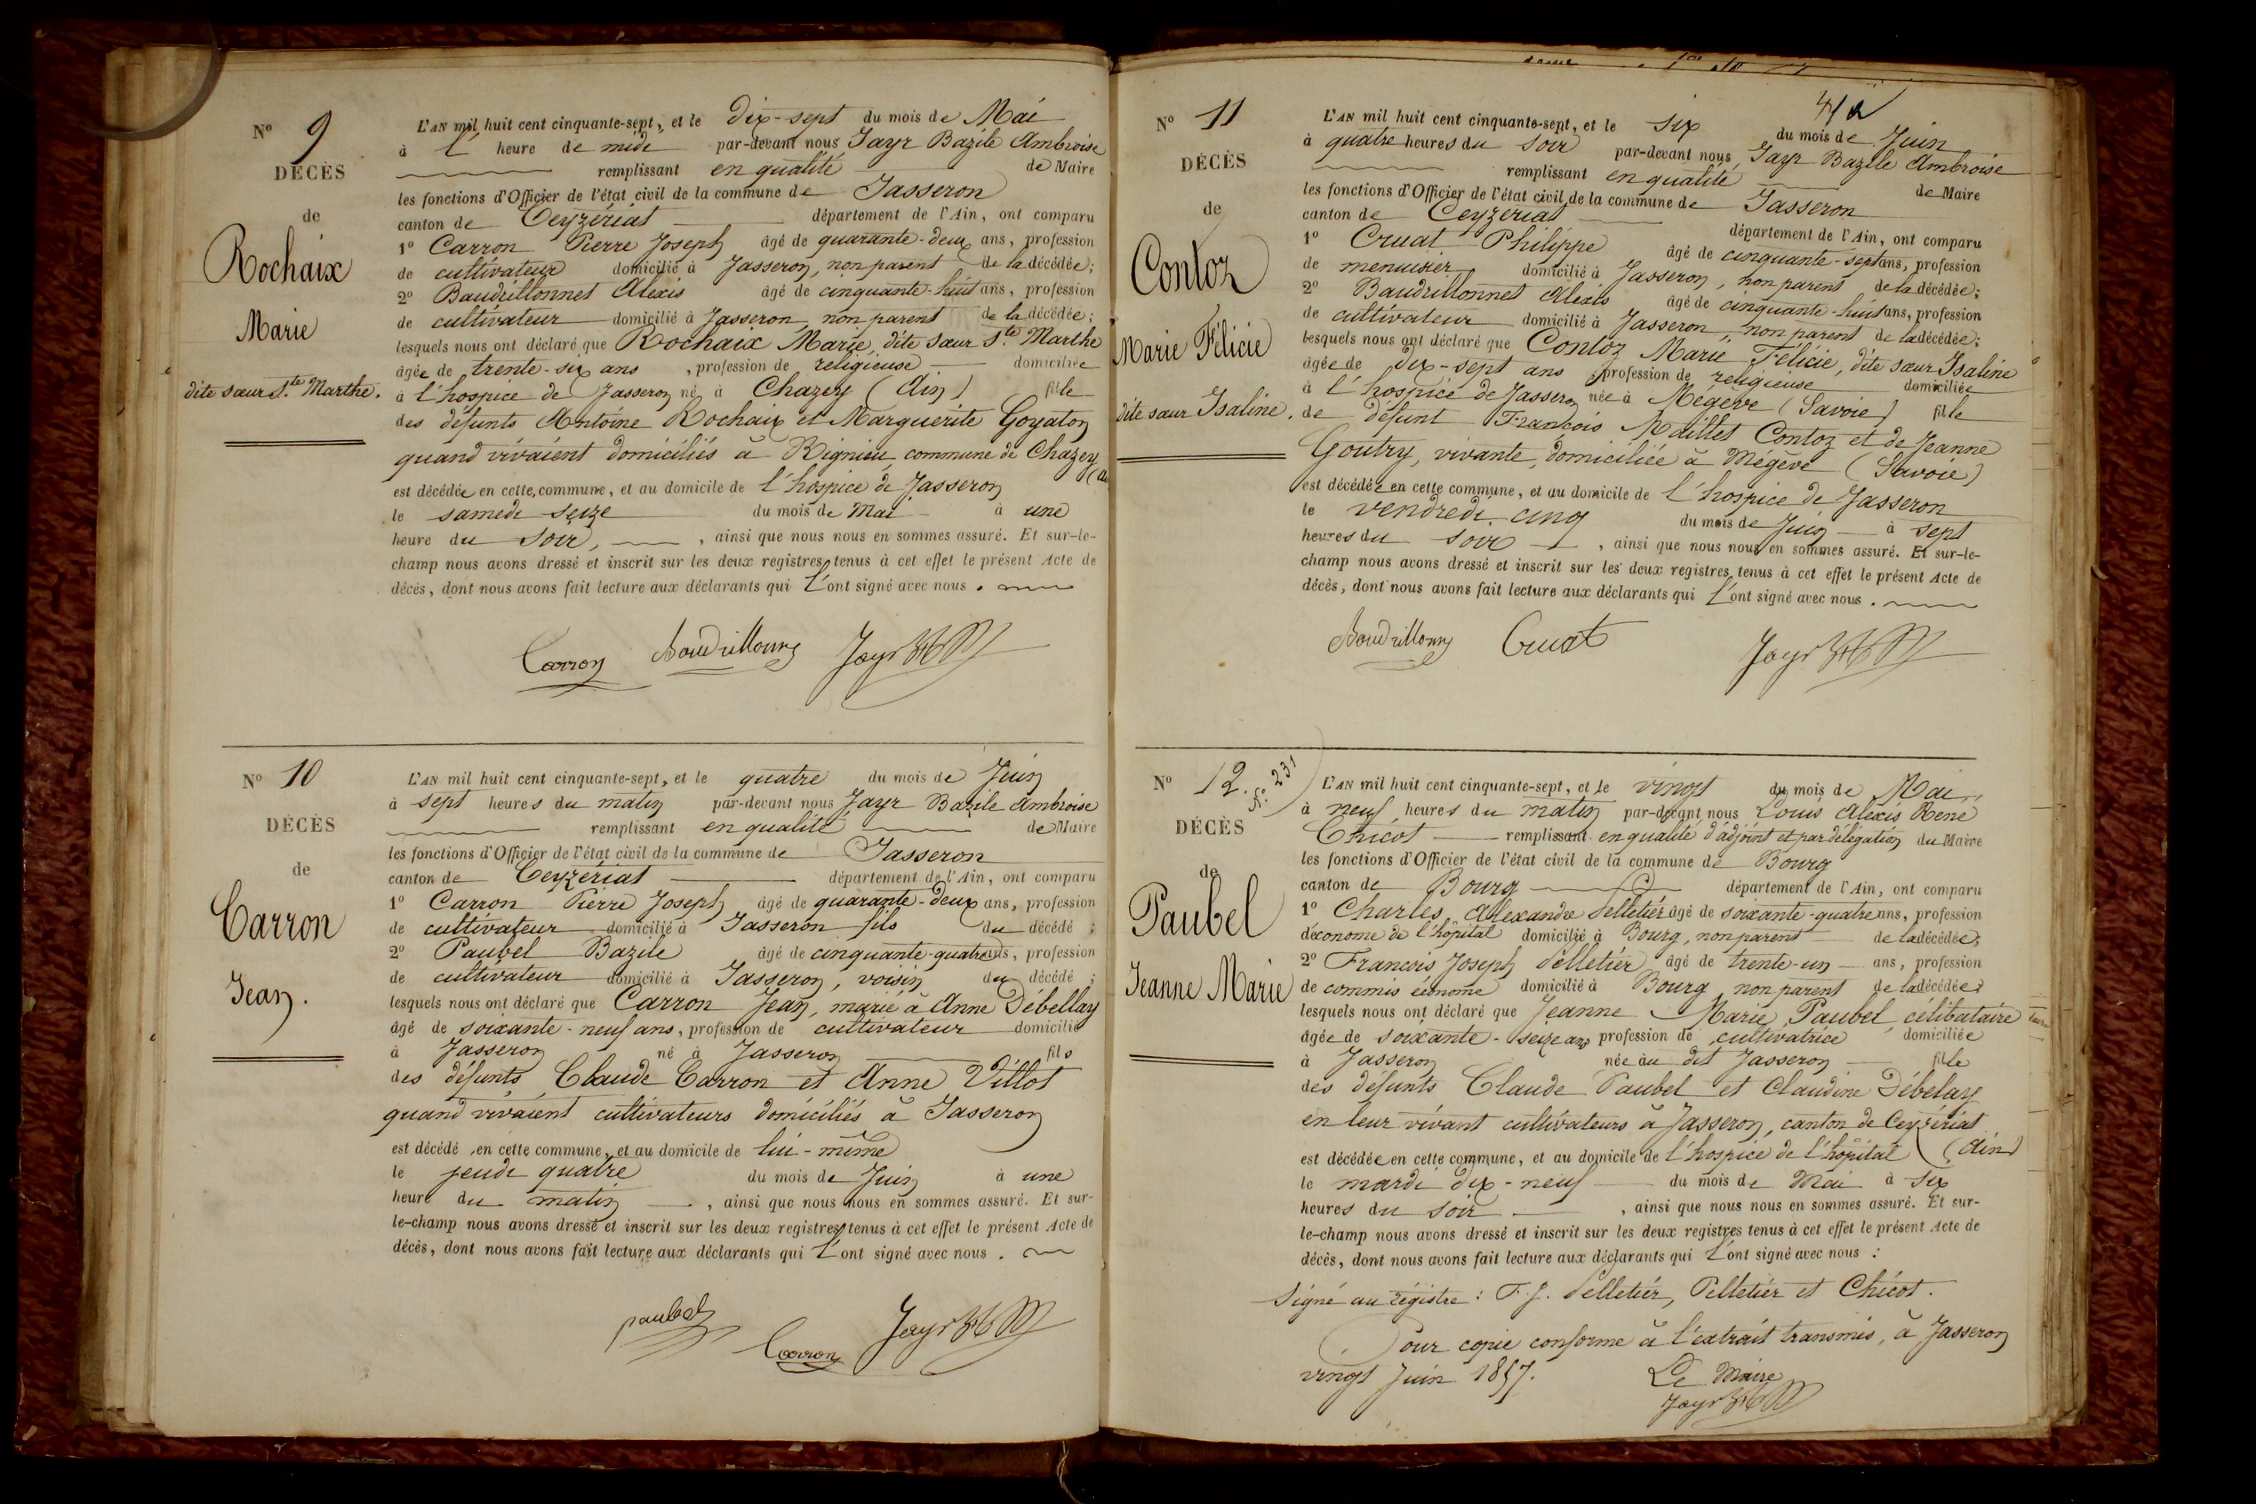 N° 9
DÉCÈS
de
Rochaix
Marie
dite sœur Ste Marthe.
L'AN mil huit cent cinquante-sept, et le dix-sept du mois de Mai
à l' heure de midi par-devant nous Jayr Bazile Ambroise
remplissant en qualité de Maire
les fonctions d'Officier de l'état civil de la commune de Jasseron
canton de Ceyzériat département de l'Ain, ont comparu
1° Carron Pierre Joseph âgé de quarante-deux ans, profession
de cultivateur domicilié à Jasseron, non parent de la décédée;
2° Baudrillonnet Alexis âgé de cinquante-huit ans, profession
de cultivateur domicilié à Jasseron, non parent de la décédée;
lesquels nous ont déclaré que Rochaix Marie, dite sœur Ste Marthe
âgée de trente-six ans, profession de religieuse domiciliée
à l'hospice de Jasseron né à Chazey (Ain) fille
des défunts Antoine Rochaix et Marguerite Goyaton
quand vivaient domiciliés à Rignieu commune de Chazey
est décédée en cette commune, et au domicile de l'hospice de Jasseron
le samedi seize du mois de Mai à une
heure du soir, , ainsi que nous nous en sommes assuré. Et sur-le-
champ nous avons dressé et inscrit sur les deux registres tenus à cet effet le présent Acte de
décès, dont nous avons fait lecture aux déclarants qui l'ont signé avec nous.
Carron Boudrillonnez Jayr
N° 10
DÉCÈS
de
Carron
Jean.
L'AN mil huit cent cinquante-sept, et le quatre du mois de Juin
à sept heures du matin par-devant nous Jayr Bazile Ambroise
remplissant en qualité de Maire
les fonctions d'Officier de l'état civil de la commune de Jasseron
canton de Ceyzériat département de l'Ain, ont comparu
1° Carron Pierre Joseph âgé de quarante-deux ans, profession
de cultivateur domicilié à Jasseron fils du décédé;
2° Paubel Bazile âgé de cinquante-quatre ans, profession
de cultivateur domicilié à Jasseron, voisin du décédé;
lesquels nous ont déclaré que Carron Jean, marié à Anne Débellay
âgé de soixante-neuf ans, profession de cultivateur domicilié
à Jasseron né à Jasseron fils
des défunts Claude Carron et Anne Villot
quand vivaient cultivateurs domiciliés à Jasseron
est décédé en cette commune, et au domicile de lui-même
le jeudi quatre du mois de Juin à une
heure du matin, ainsi que nous nous en sommes assuré. Et sur-
le-champ nous avons dressé et inscrit sur les deux registres tenus à cet effet le présent Acte de
décès, dont nous avons fait lecture aux déclarants qui l'ont signé avec nous.
paubel Carron Jayr
N° 11
DÉCÈS
de
Contoz
Marie Félicie
dite sœur Isaline.
L'AN mil huit cent cinquante-sept, et le six du mois de Juin
à quatre heures du soir par-devant nous, Jayr Bazile Ambroise
remplissant en qualité de Maire
les fonctions d'Officier de l'état civil de la commune de Jasseron
canton de Ceyzériat département de l'Ain, ont comparu
1° Cruat Philippe âgé de cinquante-sept ans, profession
de menuisier domicilié à Jasseron, non parent de la décédée;
2° Baudrillonnet Alexis âgé de cinquante-huit ans, profession
de cultivateur domicilié à Jasseron, non parent de la décédée;
lesquels nous ont déclaré que Contoz Marie Félicie, dite sœur Isaline
âgée de dix-sept ans, profession de religieuse domiciliée
à l'hospice de Jasseron née à Mégève (Savoie) fille
de défunt François Maillet Contoz et de Jeanne
Goutry, vivante, domiciliée à Mégève (Savoie)
est décédée en cette commune, et au domicile de l'hospice de Jasseron
le vendredi cinq du mois de Juin à sept
heures du soir, ainsi que nous nous en sommes assuré. Et sur-le-
champ nous avons dressé et inscrit sur les deux registres tenus à cet effet le présent Acte de
décès, dont nous avons fait lecture aux déclarants qui l'ont signé avec nous.
Boudrillonnez Cruat Jayr
N° 12. N° 231
DÉCÈS
de
Paubel
Jeanne Marie
L'AN mil huit cent cinquante-sept, et le vingt du mois de Mai,
à neuf heures du matin par-devant nous Louis Alexis René
Chicot remplissant en qualité d'adjoint et par délégation du Maire
les fonctions d'Officier de l'état civil de la commune de Bourg
canton de Bourg département de l'Ain, ont comparu
1° Charles Alexandre Pelletier âgé de soixante-quatre ans, profession
d'économe de l'hôpital domicilié à Bourg, non parent de la décédée;
2° François Joseph Pelletier âgé de trente-un ans, profession
de commis économe domicilié à Bourg, non parent de la décédée;
lesquels nous ont déclaré que Jeanne Marie Paubel célibataire
âgée de soixante-seize ans profession de cultivatrice domiciliée
à Jasseron née au dit Jasseron fille
des défunts Claude Paubel et Claudine Débelay
en leur vivant cultivateurs à Jasseron, canton de Ceyzériat
(Ain)
est décédée en cette commune, et au domicile de l'hospice de l'hôpital
le mardi dix-neuf du mois de Mai à six
heures du soir, ainsi que nous nous en sommes assuré. Et sur-
le-champ nous avons dressé et inscrit sur les deux registres tenus à cet effet le présent Acte de
décès, dont nous avons fait lecture aux déclarants qui l'ont signé avec nous :
Signé au régistre : F. J. Pelletier, Pelletier et Chicot.
Pour copie conforme à l'extrait transmis, à Jasseron
vingt Juin 1857.
Le Maire
Jayr